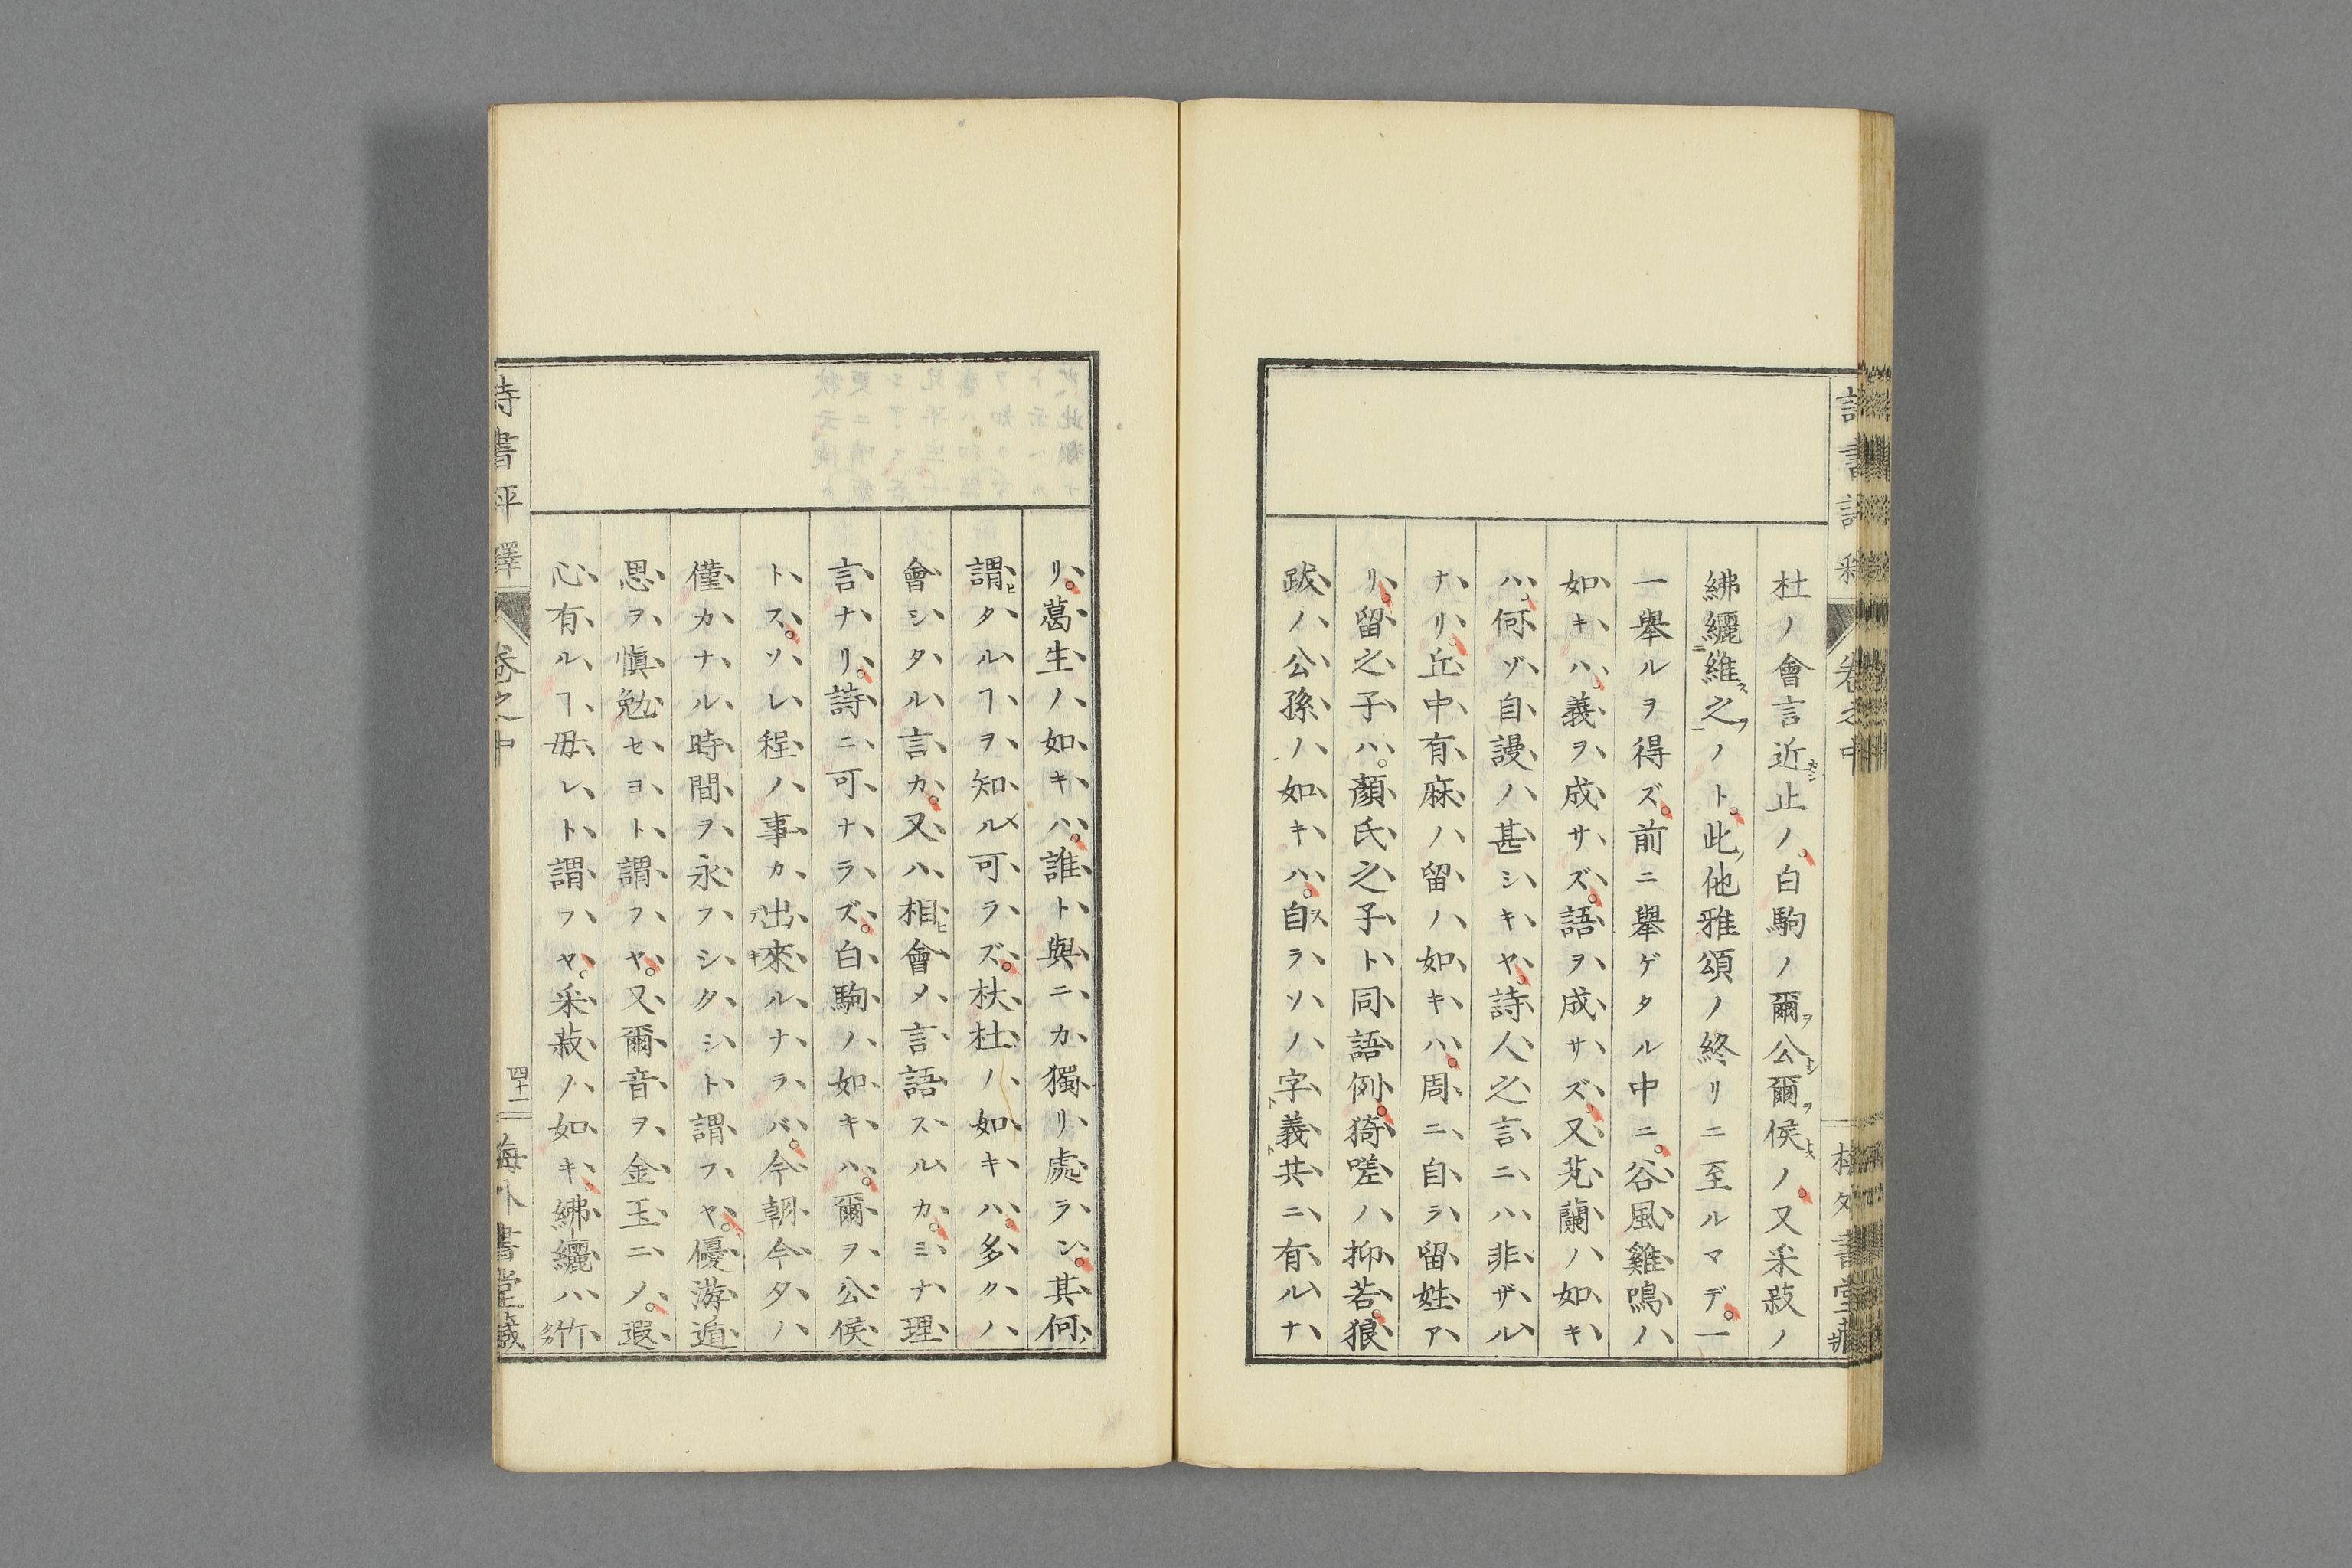 杜ノ會言近止ノ。白駒ノ爾公爾侯ノ。又采菽ノ
紼纚維之ノト。此他雅頌ノ終リニ至ルマデ。一
一擧ルヲ得ズ。前ニ擧ゲタル中ニ。谷風雞鳴ノ
如キハ。義ヲ成サズ。語ヲ成サズ。又芄蘭ノ如キ
ハ。何ゾ自謾ノ甚シキヤ。詩人之言ニハ非ザル
ナリ。丘中有麻ノ留ノ如キハ。周ニ自ラ留姓ア
リ。留之子ハ。顏氏之子ト同語例。猗嗟ノ抑若。狼
跋ノ公孫ノ如キハ。自ラソノ字義共ニ有ルナ
リ。葛生ノ如キハ。誰ト與ニカ獨リ處ラン。其何
謂タルヿヲ知ル可ラズ。杕杜ノ如キハ。多クノ
會シタル言カ。又ハ相會メ言語スルカ。ミナ理
言ナリ。詩ニ可ナラズ。白駒ノ如キハ。爾ヲ公侯
トス。ソレ程ノ事カ出來ルナラバ。今朝今夕ノ
僅カナル時間ヲ永フシタシト謂フヤ。優游遁
思ヲ愼勉セヨト謂フヤ。又爾音ヲ金玉ニメ。遐
心有ルヿ毋レト謂フヤ。采菽ノ如キ。紼纚ハ竹
詩書評釋
卷之中
四十二
海外書堂藏